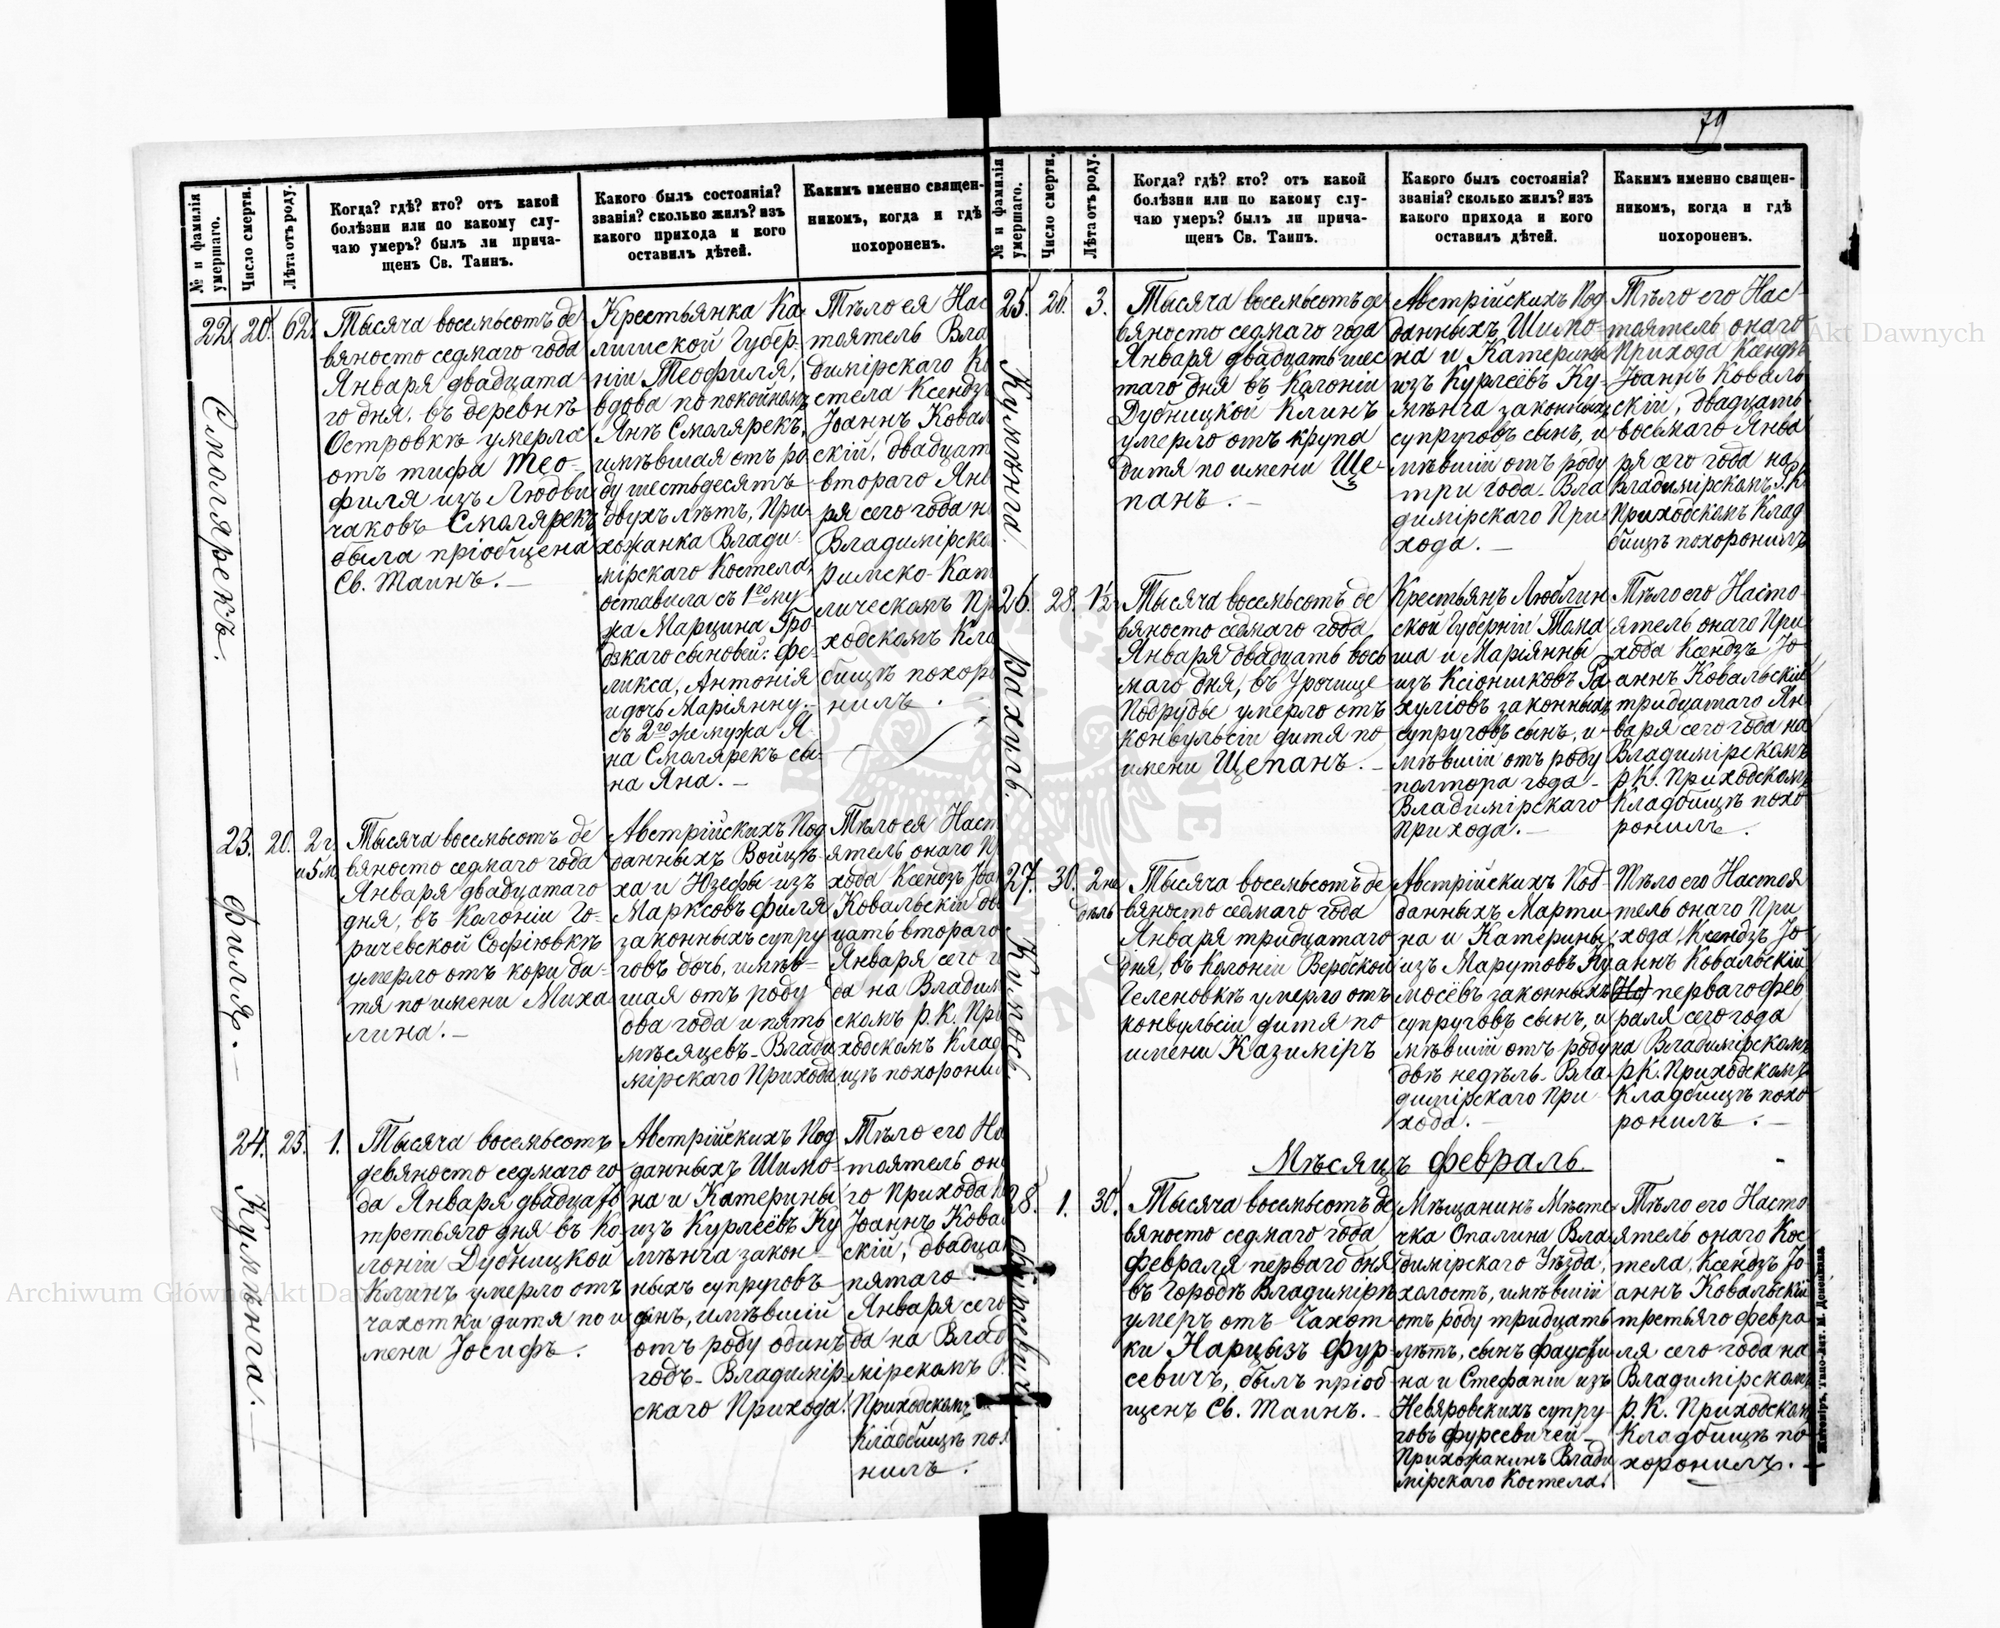 79
№ и фамилія умершаго.
Число смерти.
Лѣта отъ роду.
Когда? гдѣ? кто? отъ какой
болѣзни или по какому слу-
чаю умеръ? былъ ли прича-
щенъ Св. Таинъ.
Какого былъ состоянія?
званія? сколько жилъ? изъ
какого прихода и кого
оставилъ дѣтей.
Какимъ именно священ-
никомъ, когда и гдѣ
похороненъ.
22. 20. 62.
Смолярекъ.
Тысяча восемьсотъ де
вяносто седмаго года
Января двадцата-
го дня, въ деревнѣ
Островкѣ умерла
отъ тифа Тео-
филя изъ Людви
чаковъ Смолярекъ
была пріобщена
Св. Таинъ. —
Крестьянка Ка
лишской Губер-
ніи Теофиля,
вдова по покойномъ
Янѣ Смолярекъ,
имѣвшая отъ ро
ду шестьдесятъ
двухъ лѣтъ, При-
хожанка Влади-
мірскаго Костела,
оставила съ 1го му-
жа Марцина Гро-
дзкаго сыновей: Фе-
ликса, Антонія
и дочь Маріянну. —
съ 2го же мужа Я-
на Смолярекъ сы-
на Яна. —
Тѣло ея Нас
тоятель Вла
димірскаго Ко
стела Ксендзъ
Іоаннъ Ковал
скій, двадцат
втораго Янв
ря сего года н
Владимірско
римско-Кат
лическомъ Пр
ходскомъ Кла
бищѣ похор
нилъ.
23. 20. 2 г. и 5 м.
Филя. —
Тысяча восемьсотъ де
вяносто седмаго года
Января двадцатаго
дня, въ Колоніи Го-
ричевской Софіювкѣ
умерло отъ кори ди-
тя по имени Миха
лина. —
Австрійскихъ Под
данныхъ Войцѣ-
ха и Юзефы изъ
Марксовъ Филя
законныхъ супру
говъ дочь, имѣв-
шая отъ роду
два года и пять
мѣсяцевъ - Влади
мірскаго Прихода
Тѣло ея Наст
ятель онаго П
хода Ксендзъ Іоа
Ковальскій дв
цать втораго
Января сего г
да на Владим
скомъ р. К. При
ходскомъ Клад
ищѣ похорони
24. 23. 1.
Кулѣнга. —
Тысяча восемьсотъ
девяносто седмаго го
да Января двадцать
третьяго дня въ Ко-
лоніи Дубницкой
Клинъ умерло отъ
чахотки дитя по и
мени Іосифъ.
Австрійскихъ Под
данныхъ Шимо-
на и Катерины
изъ Курлеёвъ Ку
лѣнга закон-
ныхъ супруговъ
сынъ, имѣвшій
отъ роду одинъ
годъ - Владимір-
скаго Прихода.
Тѣло его На
тоятель она
го Прихода К
Іоаннъ Кова
скій, двадца
пятаго
Января сего
да на Влад
мірскомъ Р.
Приходскомъ
Кладбищѣ по
нилъ.
25. 26. 3.
Кулѣнга.
Тысяча восемьсотъ де
вяносто седмаго года
Января двадцать шес
таго дня въ Колоніи
Дубницкой Клинъ
умерло отъ крупа
дитя по имени Ще-
панъ. —
Австрійскихъ Под
данныхъ Шимо-
на и Катерины
изъ Курлеёвъ Ку-
лѣнга законныхъ
супруговъ сынъ, и
мѣвшій отъ роду
три года - Вла
димірскаго При-
хода. —
Тѣло его Нас-
тоятель онаго
Прихода Ксендзъ
Іоаннъ Коваль
скій, двадцать
восьмаго Янва
ря сего года на
Владимірскомъ Р.К.
Приходскомъ Клад
бищѣ похоронилъ
26. 28. 1½
Рахуль.
Тысяча восемьсотъ де
вяносто седмаго года
Января двадцать вось
маго дня, въ Урочище
Подрудье умерло отъ
конвульсіи дитя по
имени Щепанъ. —
Крестьянъ Люблин
ской Губерніи Тома
ша и Маріянны
супруговъ сынъ, и
мѣвшій отъ роду
полтора года -
Владимірскаго
Прихода. —
Тѣло его Насто
ятель онаго При
хода Ксендзъ Іо
аннъ Ковальскій
тридцатаго Ян
варя сего года на
Владимірскомъ
р.К. Приходскомъ
Кладбищѣ похо
ронилъ.
27. 30. 2 не дѣль
Кулюсь.
Тысяча восемьсотъ де
вяносто седмаго года
Января тридцатаго
дня, въ Колоніи Вербской
Геленовкѣ умерло отъ
конвульсіи дитя по
имени Казиміръ
Австрійскихъ Под-
данныхъ Марти-
на и Катерины
супруговъ сынъ, и
мѣвшій отъ роду
двѣ недѣль - Вла
димірскаго При
хода. —
Тѣло его Настоя
тель онаго При
хода, Ксендзъ Іо
аннъ Ковальскій
перваго Фев
раля сего года
на Владимірскомъ
р.К. Приходскомъ
Кладбищѣ похо
ронилъ. —
Мѣсяцъ Февраль
28. 1. 30.
Фурсевичъ.
Тысяча восемьсотъ де
вяносто седмаго года
Февраля перваго дня
въ городѣ Владимірѣ
умеръ отъ Чахот
ки Нарцызъ Фур
севичъ, былъ пріоб
щенъ Св. Таинъ. —
Мѣщанинъ Мѣсте
чка Опалина Вла
димірскаго Уѣзда,
холостъ, имѣвшій
отъ роду тридцать
лѣтъ, сынъ Фаусти
на и Стефаніи изъ
Невяровскихъ супру-
говъ Фурсевичей -
Прихожанинъ Влади
мірскаго Костела.
Тѣло его Насто
ятель онаго Кос
тела, Ксендзъ Іо
аннъ Ковальскій
третьяго Февра
ля сего года на
Владимірскомъ
р.К. Приходскомъ
Кладбищѣ по
хоронилъ. —
Archiwum Główne Akt Dawnych